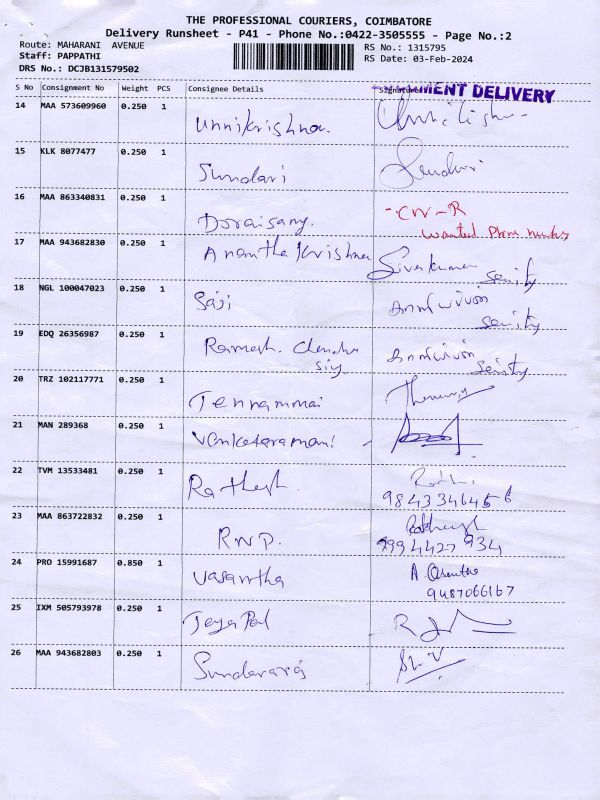 THE PROFESSIONAL COURIERS, COIMBATORE
Delivery Runsheet - P41 - Phone No.:0422-3505555 - Page No.:2
Route: MAHARANI AVENUE
RS No.: 1315795
Staff: PAPPATHI
RS Date: 03-Feb-2024
DRS No.: DCJB131579502
S No Consignment No Weight PCS Consignee Details Signature
DELIVERY
14 MAA 573609960 0.250 1 Unnikrishnan
15 KLK 8077477 0.250 1 Sundari Sundari
16 MAA 863340831 0.250 1 Doraisamy. -CW-R
Wanted Phone number
17 MAA 943682830 0.250 1 Anantha Krishnan Sivakumar
18 NGL 100047023 0.250 1 Saji
19 EDQ 26356987 0.250 1 Ramesh. Chandra
20 TRZ 102117771 0.250 1 Tennammai
21 MAN 289368 0.250 1 Venketaramani
22 TVM 13533481 0.250 1 Rathesh
9843346456
23 MAA 863722832 0.250 1 RNP.
9994427934
24 PRO 15991687 0.850 1 Vasantha
9487066167
25 IXM 505793978 0.250 1 Jeya Pal
26 MAA 943682803 0.250 1 Sundararaj